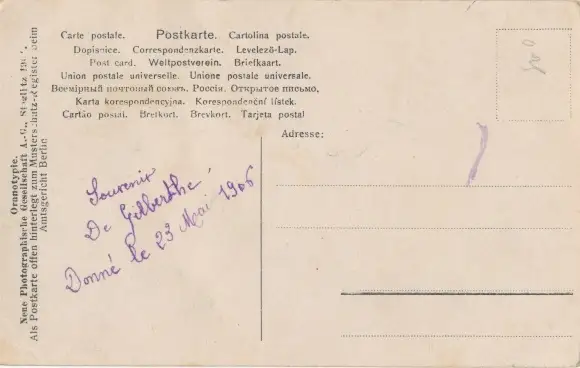 Carte postale. Postkarte. Cartolina postale.
Dopisnice. Correspondenzkarte. Levelező-Lap.
Post card. Weltpostverein. Briefkaart.
Union postale universelle. Unione postale universale.
Всемірный почтовый союзъ. Россія. Открытое письмо.
Karta korespondencyjna. Korespondenční lístek.
Cartão postal. Brefkort. Brevkort. Tarjeta postal
Adresse:
Souvenir
De Gilberthe
Donné le 23 Mai 1906
Oranotypie.
Neue Photographische Gesellschaft A.-G., Steglitz
Als Postkarte offen hinterlegt zum Musterschutz-Register beim
Amtsgericht Berlin